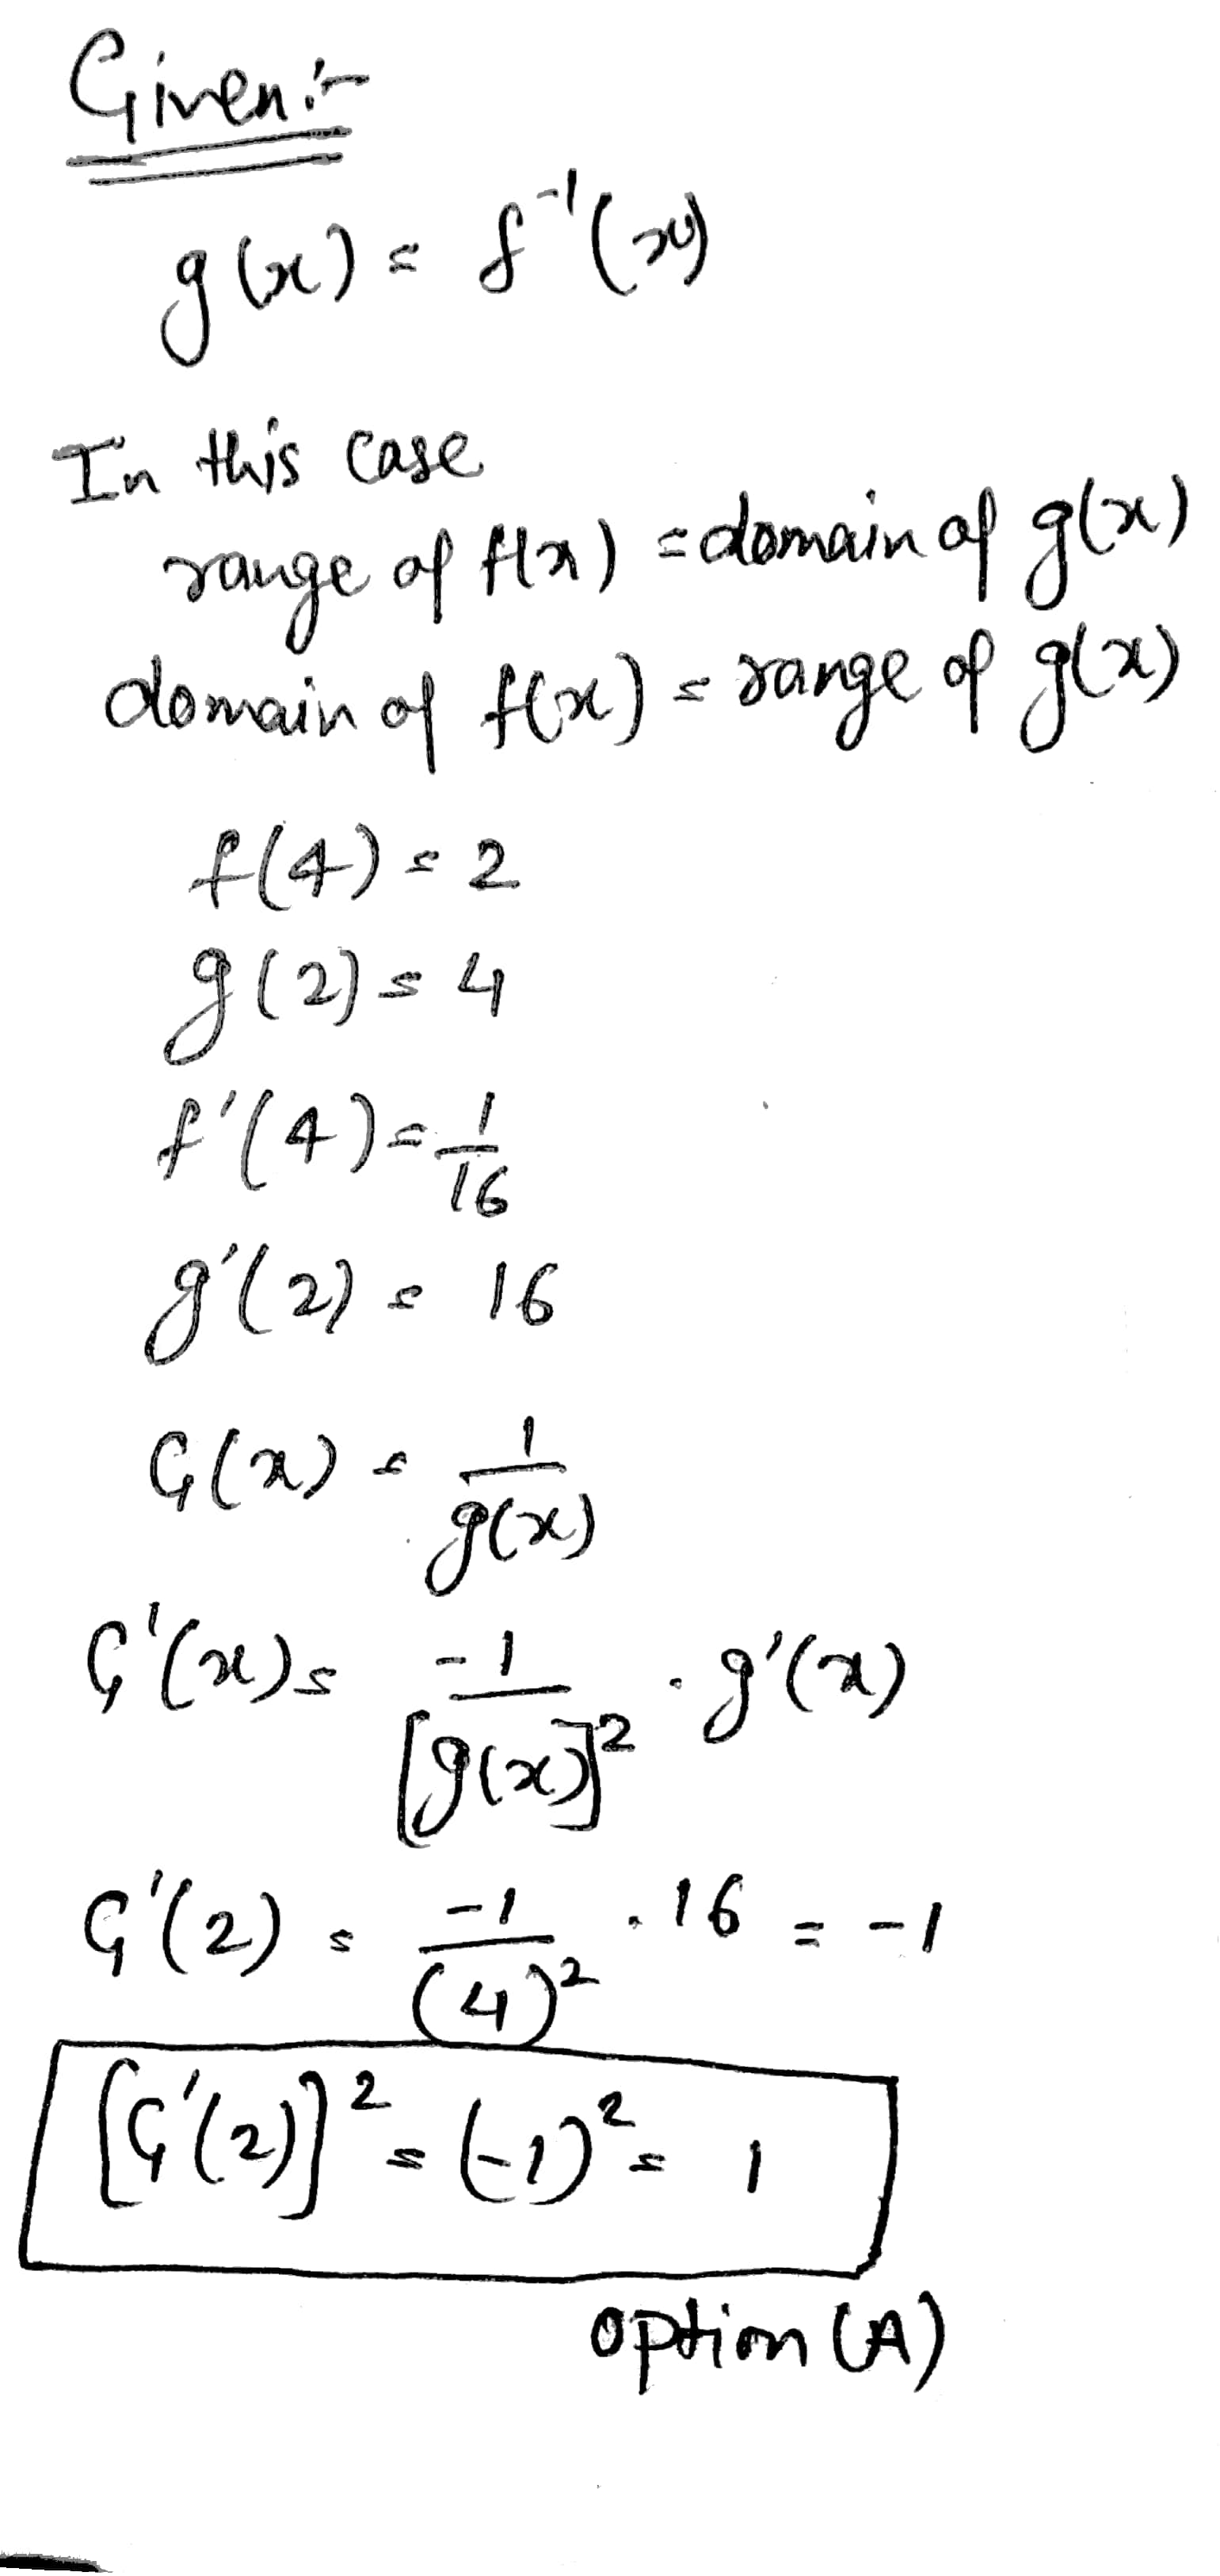 Given:-
g(x) = f⁻¹(x)
In this case
range of f(x) = domain of g(x)
domain of f(x) = range of g(x)
f(4) = 2
g(2) = 4
f'(4) = 1/16
g'(2) = 16
G(x) = 1/g(x)
G'(x) = -1/[g(x)]² · g'(x)
G'(2) = -1/(4)² · 16 = -1
[G'(2)]² = (-1)² = 1
option (A)